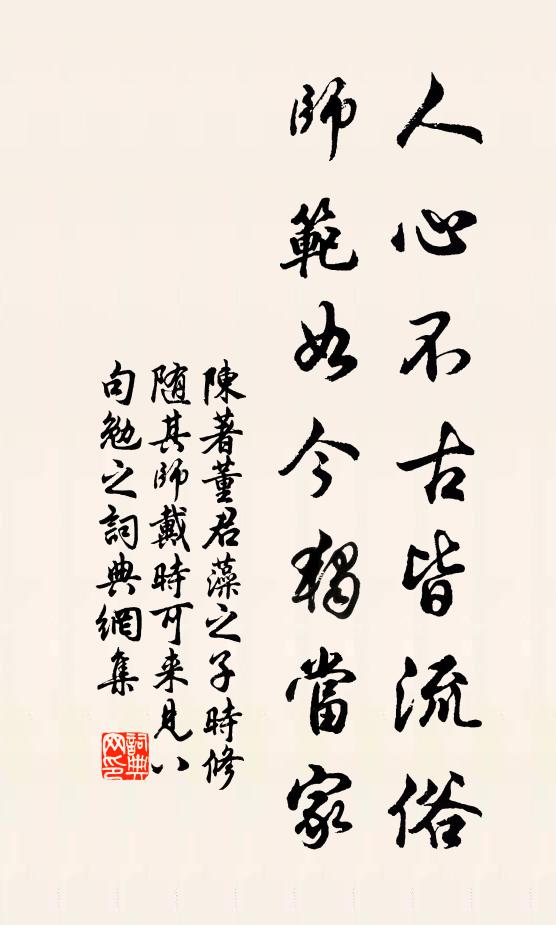 人心不古皆流俗
師範如今獨當家
陳著董君藻之子時修
随其師戴時可来見八
句勉之詞典網集
詞典网印